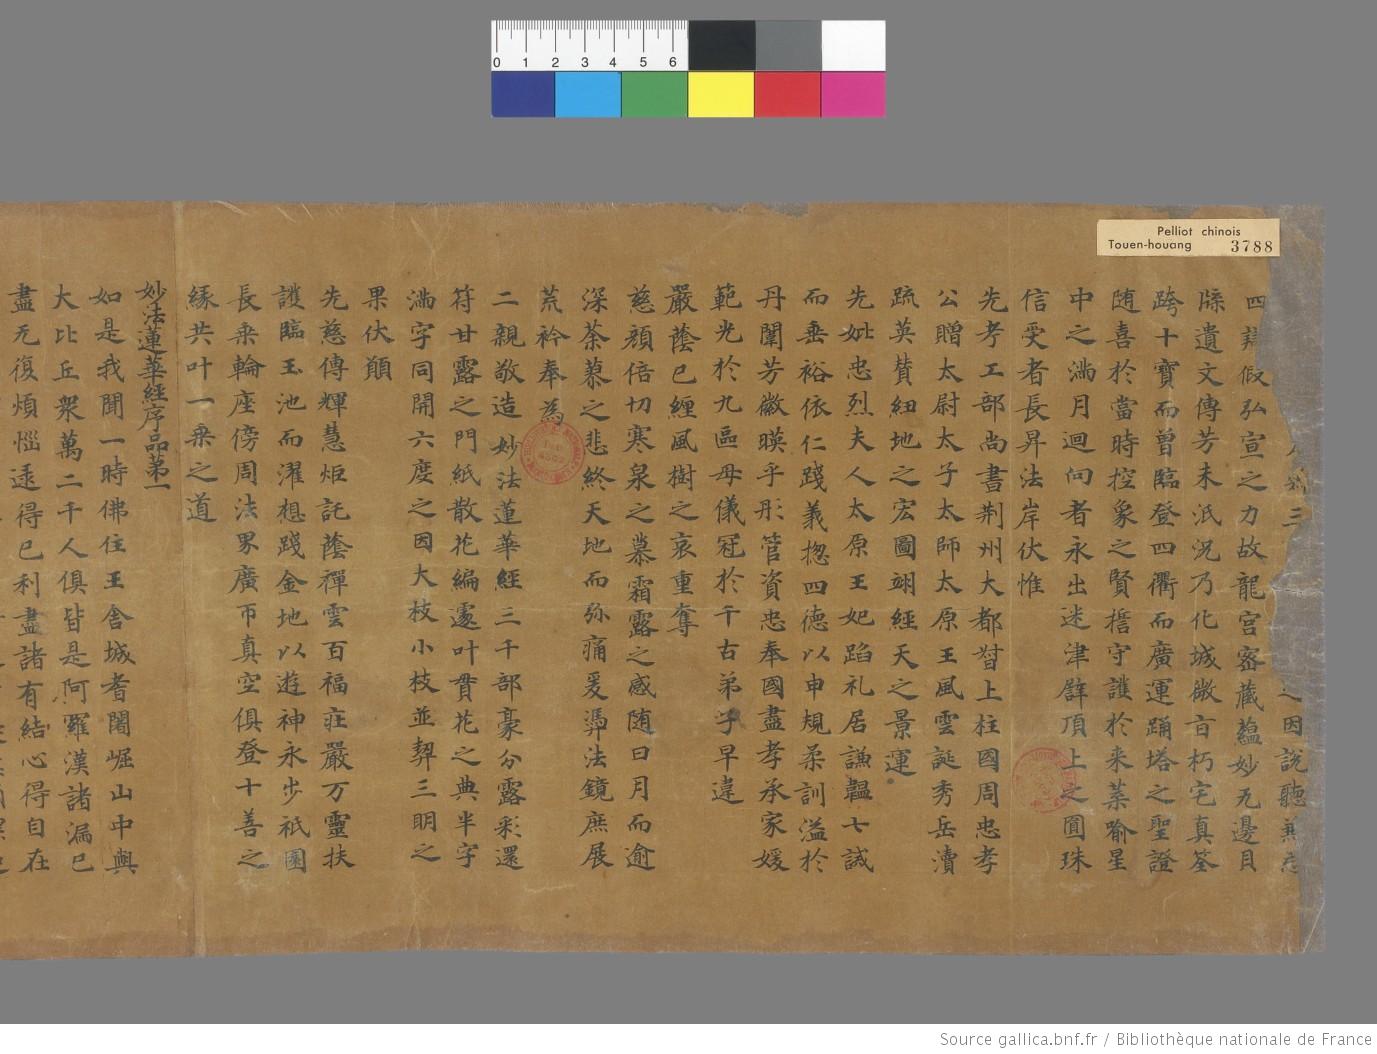 0 1 2 3 4 5 6
Pelliot chinois
Touen-houang 3788
三 之因說聽兼忘
四 假弘宣之力故龍宮密藏蘊妙无邊貝
牒遺文傳芳未泯況乃化城徴旨朽宅真筌
跨十寶而曾臨登四衢而廣運踊塔之聖證
随喜於當時控象之賢誓守護於来葉喻星
中之滿月迴向者永出迷津譬頂上之圓珠
信受者長昇法岸伏惟
先考工部尚書荆州大都督上柱國周忠孝
公贈太尉太子太師太原王風雲誕秀岳瀆
疏英賛紐地之宏圖翊經天之景運
先妣忠烈夫人太原王妃蹈礼居謙韞七誡
而垂裕依仁踐義揔四德以申規柔訓溢於
丹闈芳徽暎乎彤管資忠奉國盡孝承家媛
範光於九區母儀冠於千古弟子早違
嚴蔭已纏風樹之哀重奪
慈顔倍切寒泉之慕霜露之感随日月而逾
深荼慕之悲終天地而弥痛爰憑法鏡庶展
荒衿奉為
二親敬造妙法蓮華經三千部豪分露彩還
符甘露之門紙散花編遽叶貫花之典半字
滿字同開六度之因大枝小枝並契三明之
果伏願
先慈傳輝慧炬託蔭禪雲百福莊嚴万靈扶
護臨玉池而濯想踐金地以遊神永步祇園
長乗輪座傍周法界廣帀真空俱登十善之
緣共叶一乗之道
妙法蓮華經序品第一
如是我聞一時佛住王舍城耆闍崛山中與
大比丘衆萬二千人俱皆是阿羅漢諸漏已
盡无復煩惱逮得已利盡諸有結心得自在
Source gallica.bnf.fr / Bibliothèque nationale de France